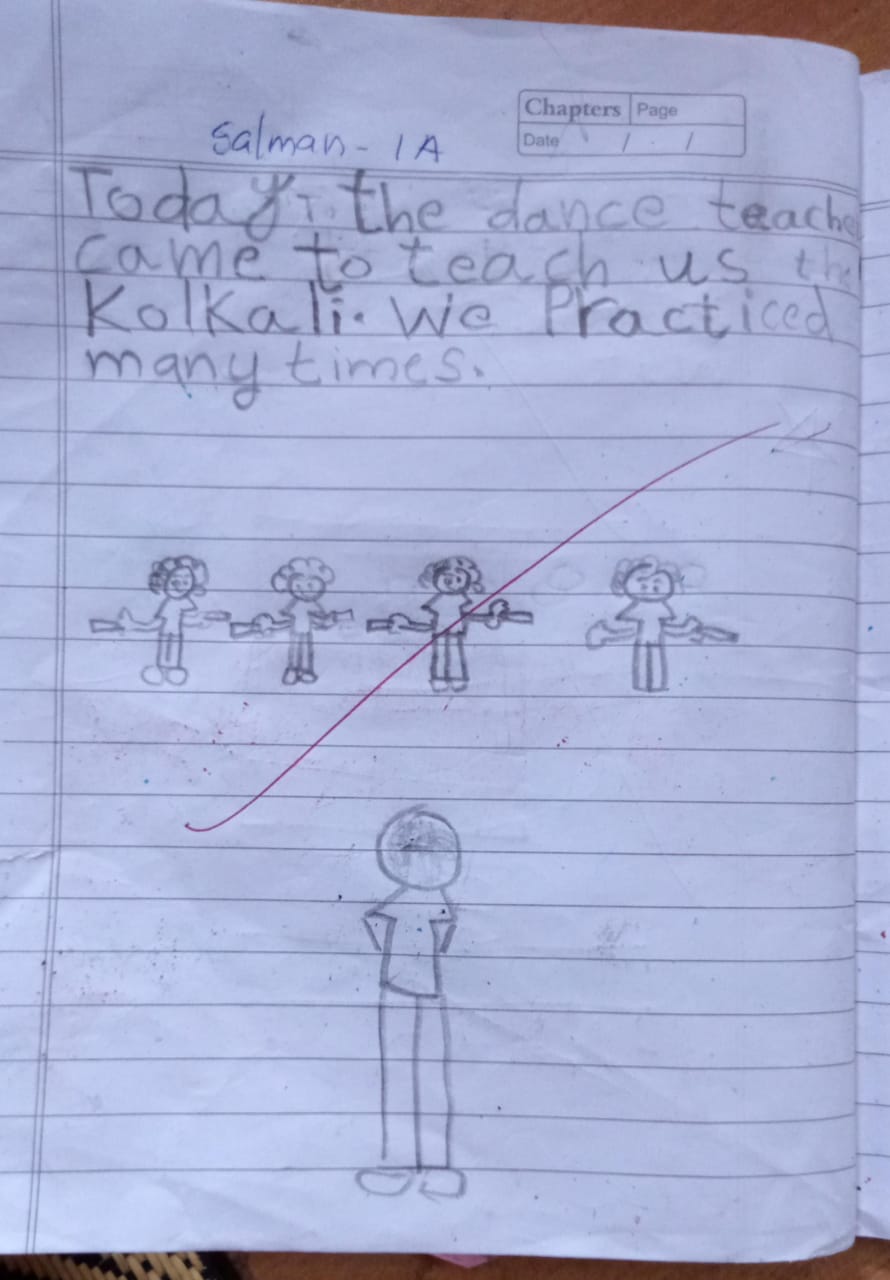 Chapters Page
Date / /
Salman - 1A
Today, the dance teache
came to teach us the
Kolkali. We Practiced
many times.